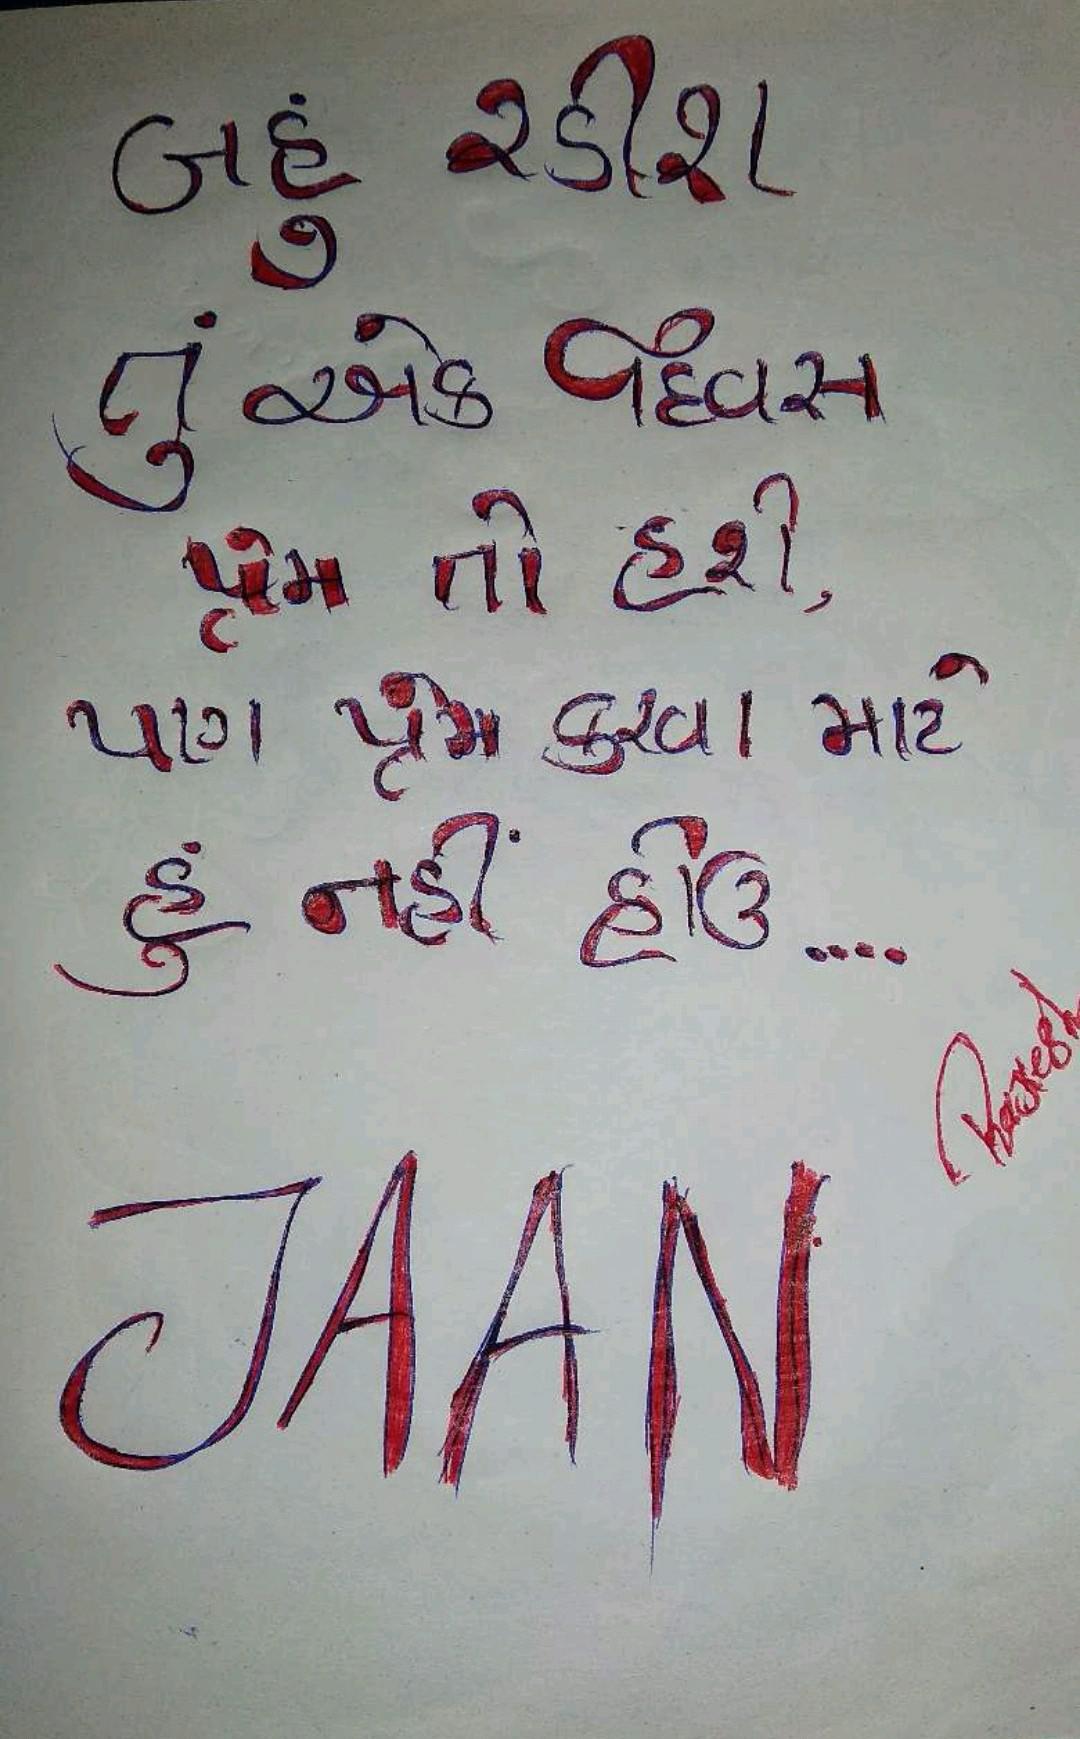 બહું રડીશ
તું એક દિવસ
પ્રેમ તો હશે,
પણ પ્રેમ કરવા માટે
હું નહીં હોઉ....
Rakesh
JAAN